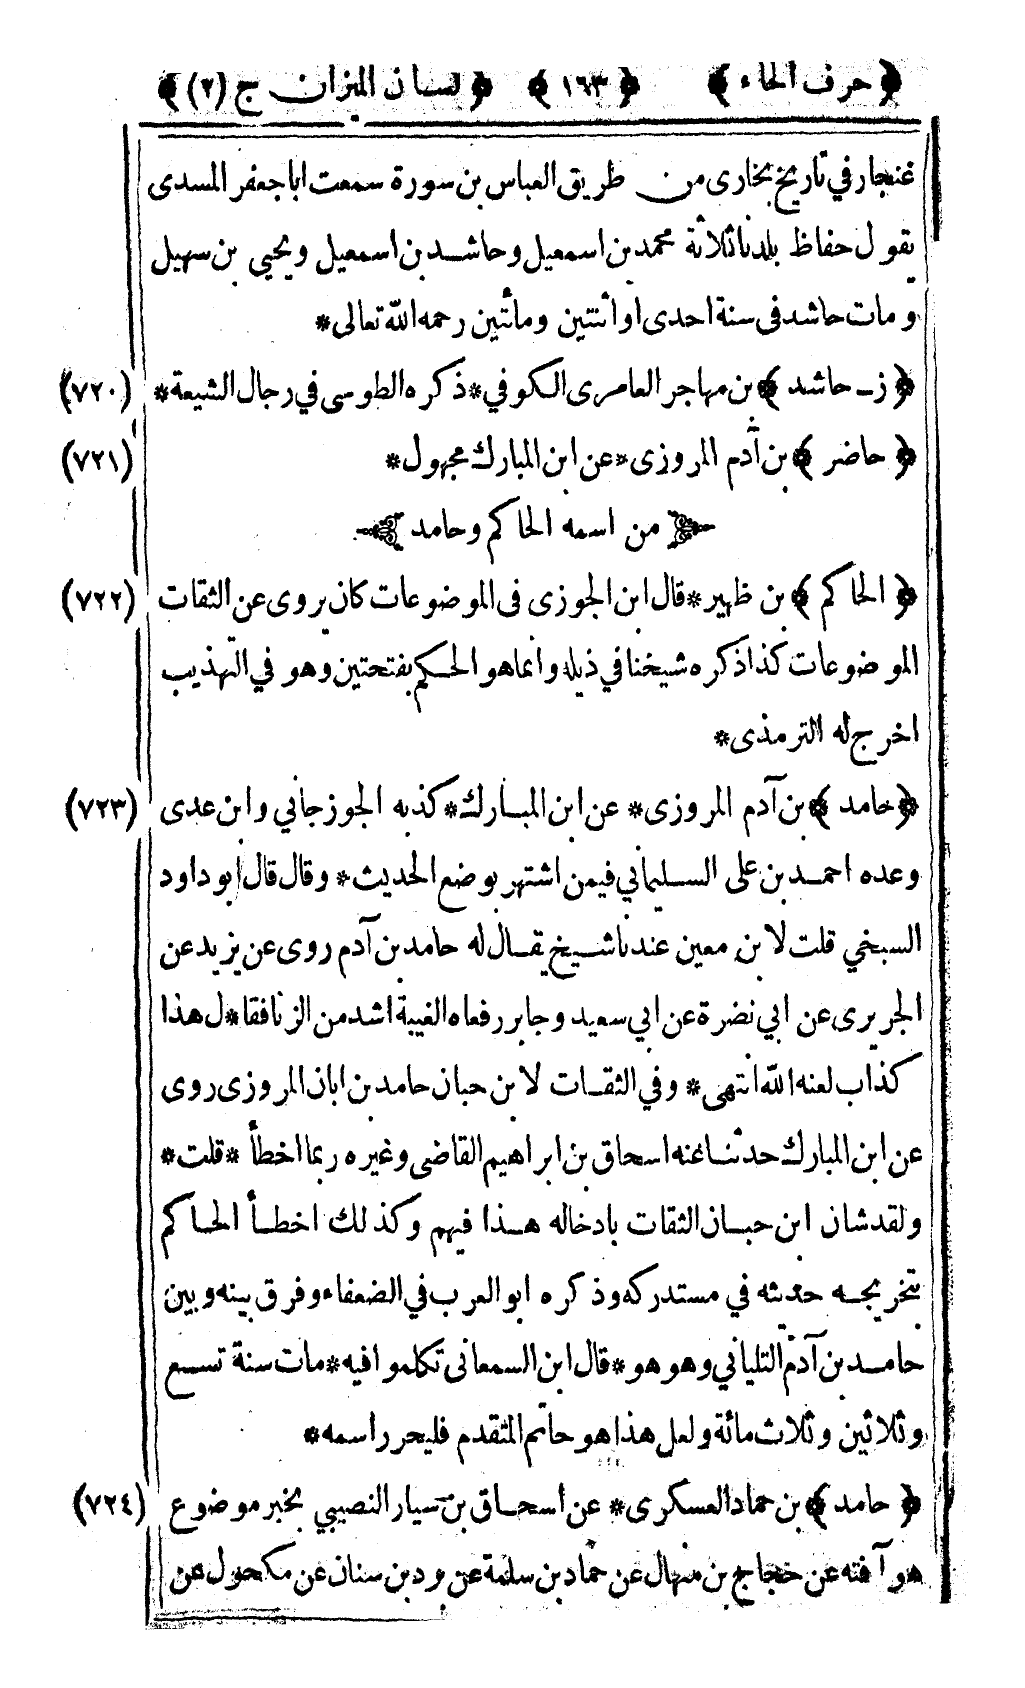 ﴿حرف الحاء﴾ ﴿١٦٣﴾ ﴿لسان الميزان ج (٢)﴾
غنجار في تاريخ بخارى من طريق العباس بن سورة سمعت ابا جعفر المسدى
يقول حفاظ بلدنا ثلاثة محمد بن اسمعيل وحاشد بن اسمعيل ويحيى بن سهيل
ومات حاشد فى سنة احدى او اثنتين ومأتين رحمه الله تعالى*
﴿ز- حاشد﴾ بن مهاجر العامرى الكوفي* ذكره الطوسى في رجال الشيعة* (٧٢٠)
﴿حاضر﴾ بن آدم المروزى* عن ابن المبارك مجهول* (٧٢١)
من اسمه الحاكم وحامد
﴿الحاكم﴾ بن ظهير* قال ابن الجوزى فى الموضوعات كان يروى عن الثقات (٧٢٢)
الموضوعات كذا ذكره شيخنا في ذيله وانما هو الحكم بفتحتين وهو في التهذيب
اخرج له الترمذى*
﴿حامد﴾ بن آدم المروزى* عن ابن المبارك* كذبه الجوزجاني وابن عدى (٧٢٣)
وعده احمد بن على السليماني فيمن اشتهر بوضع الحديث* وقال قال ابو داود
السبخي قلت لابن معين عندنا شيخ يقال له حامد بن آدم روى عن يزيد عن
الجريرى عن ابي نضرة عن ابي سعيد وجابر رفعاه الغيبة اشد من الزنا فقا*ل هذا
كذاب لعنه الله انتهى* وفي الثقات لابن حبان حامد بن ابان المروزى روى
عن ابن المبارك حدثنا عنه اسحاق بن ابراهيم القاضى وغيره ربما اخطأ *قلت*
ولقد شان ابن حبان الثقات بادخاله هذا فيهم وكذلك اخطأ الحاكم
بتخريجه حديثه في مستدركه وذكره ابو العرب في الضعفاء وفرق بينه وبين
حامد بن آدم التلياني وهو هو* قال ابن السمعانى تكلموا فيه* مات سنة تسع
وثلاثين وثلاث مائة ولعل هذا هو حاتم المتقدم فليحرر اسمه*
﴿حامد﴾ بن حماد العسكرى* عن اسحاق بن سيار النصيبي بخبر موضوع (٧٢٤)
هو آفته عن حجاج بن منهال عن حماد بن سلمة عن برد بن سنان عن مكحول عن